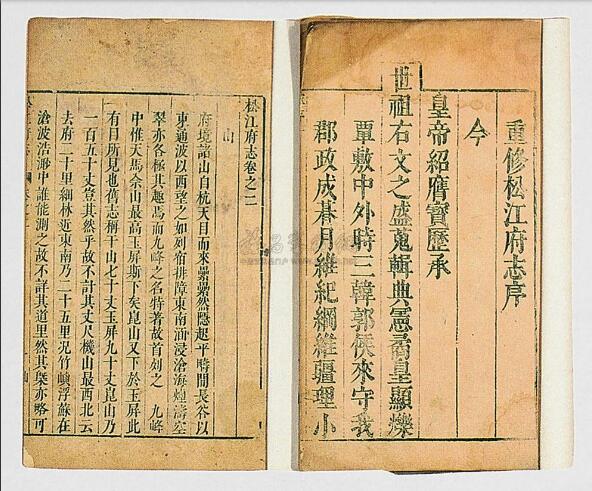 重修松江府志序
今
皇帝紹膺寶歷承
世祖右文之盛蒐輯典憲矞皇顯爍
覃敷中外時三韓郭侯來守我
郡政成朞月維紀綱維疆理小
松江府志卷之二
山
府境諸山自杭天目而來纍纍然隱起平時間長谷以
東通波以西望之如列宿排障東南涵浸滄海煙濤空
翠亦各極其趣焉而九峰之名特著故首列之 九峰
中惟天馬佘山最高玉屏斯下矣崑山又下於玉屏此
有目所見也舊志稱干山七十丈玉屏九十丈崑山乃
一百五十丈豈其然乎故不計其丈尺機山最西北云
去府二十里細林近東南乃二十五里况竹嶼浮蘇在
滄波浩渺中誰能測之故不詳其道里然其槩亦略可